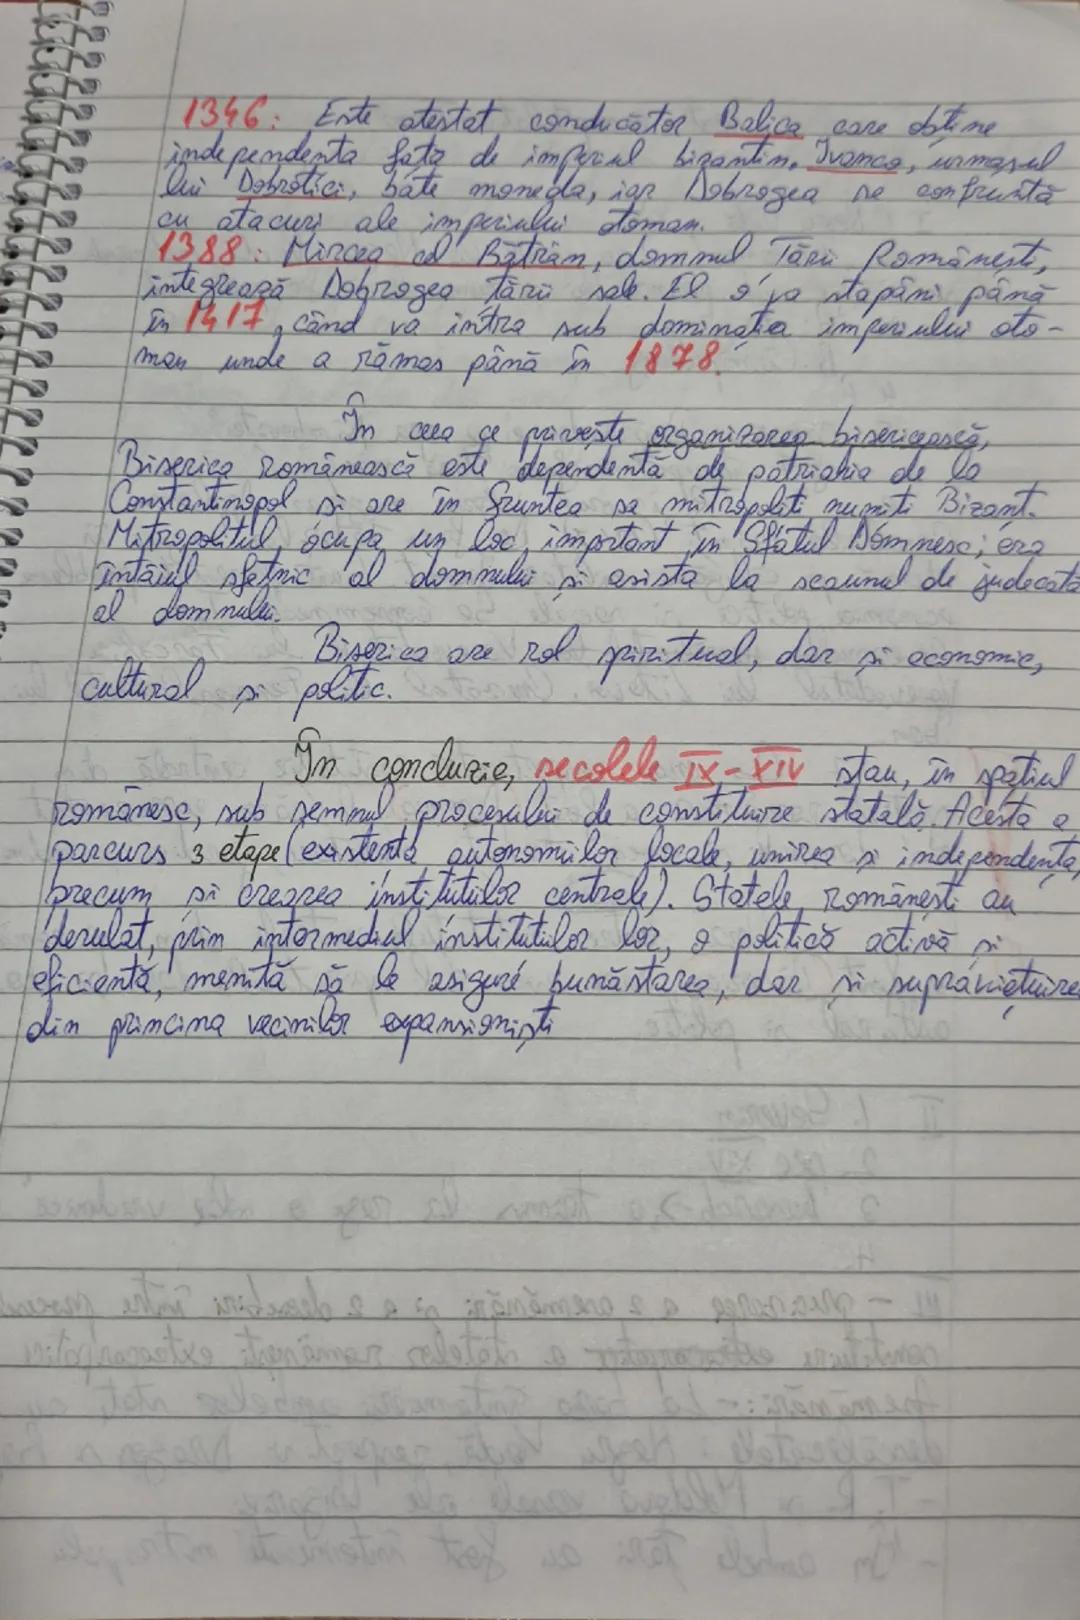 1346: Este atestat conducător Balica care obține
independența față de imperiul bizantin. Ivanco, urmașul
lui Dobrotici, bate moneda, iar Dobrogea se confruntă
cu atacuri ale imperiului otoman.
1388: Mircea cel Bătrân, domnul Țării Românești,
integrează Dobrogea țării sale. El o va stăpâni până
în 1417, când va intra sub dominația imperiului oto-
man unde a rămas până în 1878.
În ceea ce privește organizarea bisericească,
Biserica românească este dependentă de patriahia de la
Constantinopol și are în fruntea sa mitropoliți numiți Bizant.
Mitropolitul ocupa un loc important în Sfatul Domnesc; era
întâiul sfetnic al domnului și asista la scaunul de judecată
al domnului.
Biserica are rol spiritual, dar și economic,
cultural și politic.
În concluzie, secolele IX-XIV stau, în spațiul
românesc, sub semnul procesului de constituire statală. Acesta a
parcurs 3 etape (existența autonomiilor locale, unirea și independența,
precum și crearea instituțiilor centrale). Statele românești au
derulat, prin intermediul instituțiilor lor, o politică activă și
eficientă, menită să le asigure bunăstarea, dar și supraviețuirea
din pricina vecinilor expansioniști